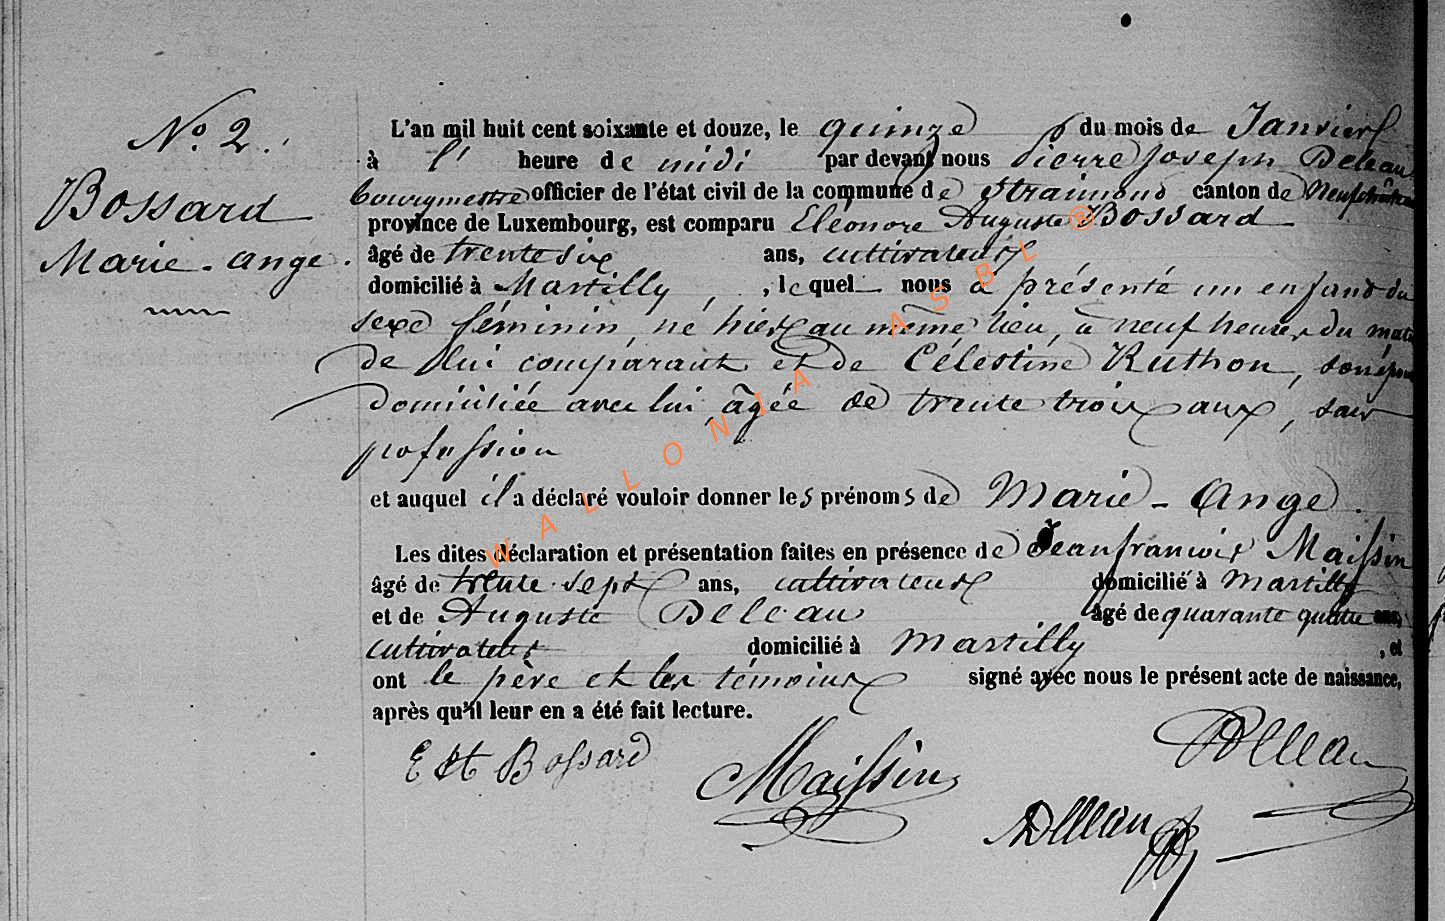 N° 2.
Bossard
Marie-Ange.
L'an mil huit cent soixante et douze, le quinze du mois de Janvier
à l' heure de midi par devant nous Pierre Joseph Deleau
bourgmestre officier de l'état civil de la commune de Straimond canton de Neufchâteau
province de Luxembourg, est comparu Eléonore Auguste Bossard
âgé de trente six ans, cultivateur
domicilié à Martilly, , lequel nous a présenté un enfant du
sexe féminin, né hier au même lieu, à neuf heures du matin
de lui comparant et de Célestine Ruthon, son épouse
domiciliée avec lui, âgée de trente trois ans, sans
profession
et auquel il a déclaré vouloir donner les prénoms de Marie-Ange.
Les dites déclaration et présentation faites en présence de Jean françois Maissin
âgé de trente-sept ans, cultivateur domicilié à Martilly
et de Auguste Deleau âgé de quarante quatre ans,
cultivateur domicilié à Martilly , et
ont le père et les témoins signé avec nous le présent acte de naissance,
après qu'il leur en a été fait lecture.
Bossard
Maissin
Deleau
ADeleau
WALLONIA ASBL ®